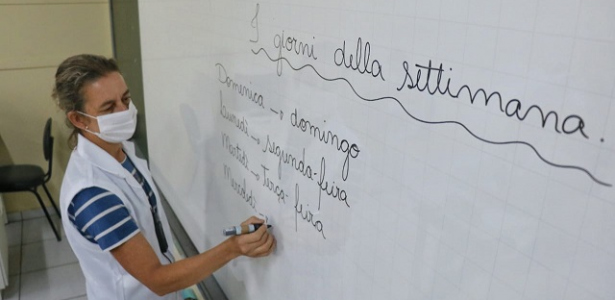 I giorni della settimana.
Domenica → domingo
Lunedì → segunda-feira
Martedì → terça-feira
Mercoledì